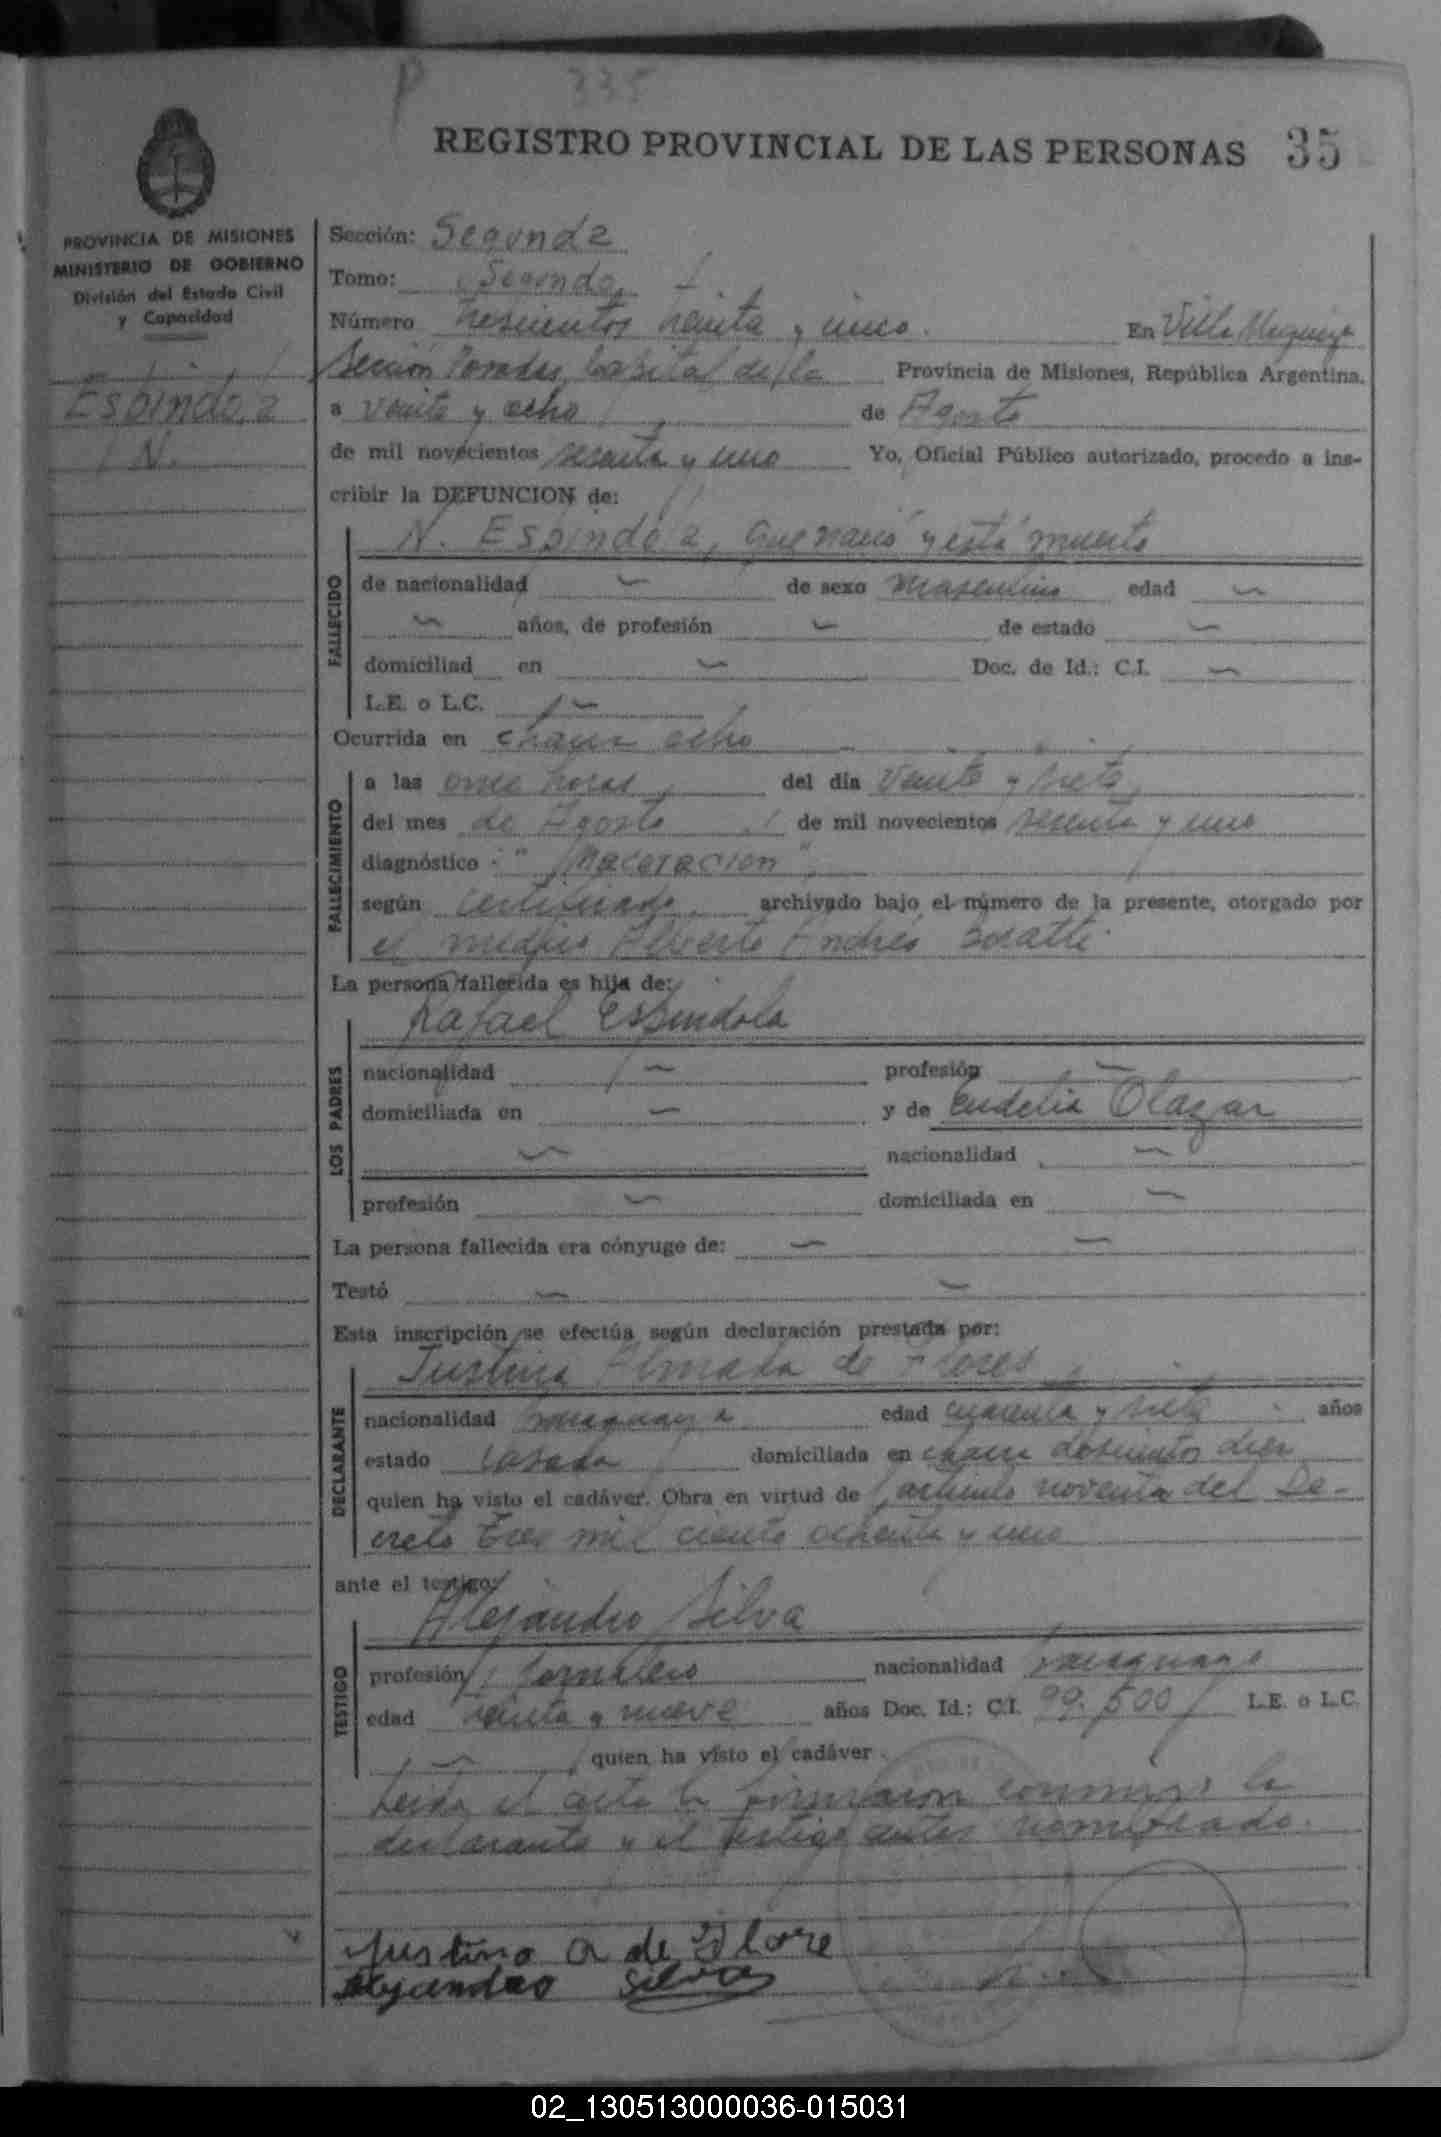 P 335
REGISTRO PROVINCIAL DE LAS PERSONAS 35
PROVINCIA DE MISIONES
MINISTERIO DE GOBIERNO
División del Estado Civil
y Capacidad
Espindola
N.
Sección: Segunda
Tomo: Segundo
Número Tresientos treinta y cinco. En Villa Urquiza
Sección Posadas, Capital de la Provincia de Misiones, República Argentina,
a veinte y ocho de Agosto
de mil novecientos sesenta y uno Yo, Oficial Público autorizado, procedo a ins-
cribir la DEFUNCION de:
N. Espindola, que nació y está muerto
FALLECIDO
de nacionalidad — de sexo masculino edad —
— años, de profesión — de estado —
domiciliad en — Doc. de Id.: C.I. —
L.E. o L.C. —
Ocurrida en chacra ocho
FALLECIMIENTO
a las once horas del día veinte y siete
del mes de Agosto de mil novecientos sesenta y uno
diagnóstico "Maceración"
según certificado archivado bajo el número de la presente, otorgado por
el médico Alberto Andrés
La persona fallecida es hija de:
Rafael Espindola
LOS PADRES
nacionalidad — profesión —
domiciliada en — y de Eudelia Olazar
— nacionalidad —
profesión — domiciliada en —
La persona fallecida era cónyuge de: — —
Testó — —
Esta inscripción se efectúa según declaración prestada por:
Justina Almada de Flores
DECLARANTE
nacionalidad paraguaya edad cuarenta y siete años
estado casada domiciliada en chacra dosientos diez
quien ha visto el cadáver. Obra en virtud de artículo noventa del De-
creto tres mil ciento ochenta y uno
ante el testigo:
Alejandro Silva
TESTIGO
profesión Jornalero nacionalidad paraguayo
edad treinta y nueve años Doc. Id.: C.I. 99.500 L.E. o L.C.
— quien ha visto el cadáver
Leida el acta la firmaron conmigo la
declarante y el testigo antes nombrado.
Justina A de Flore
Alejandro Silva
02_130513000036-015031